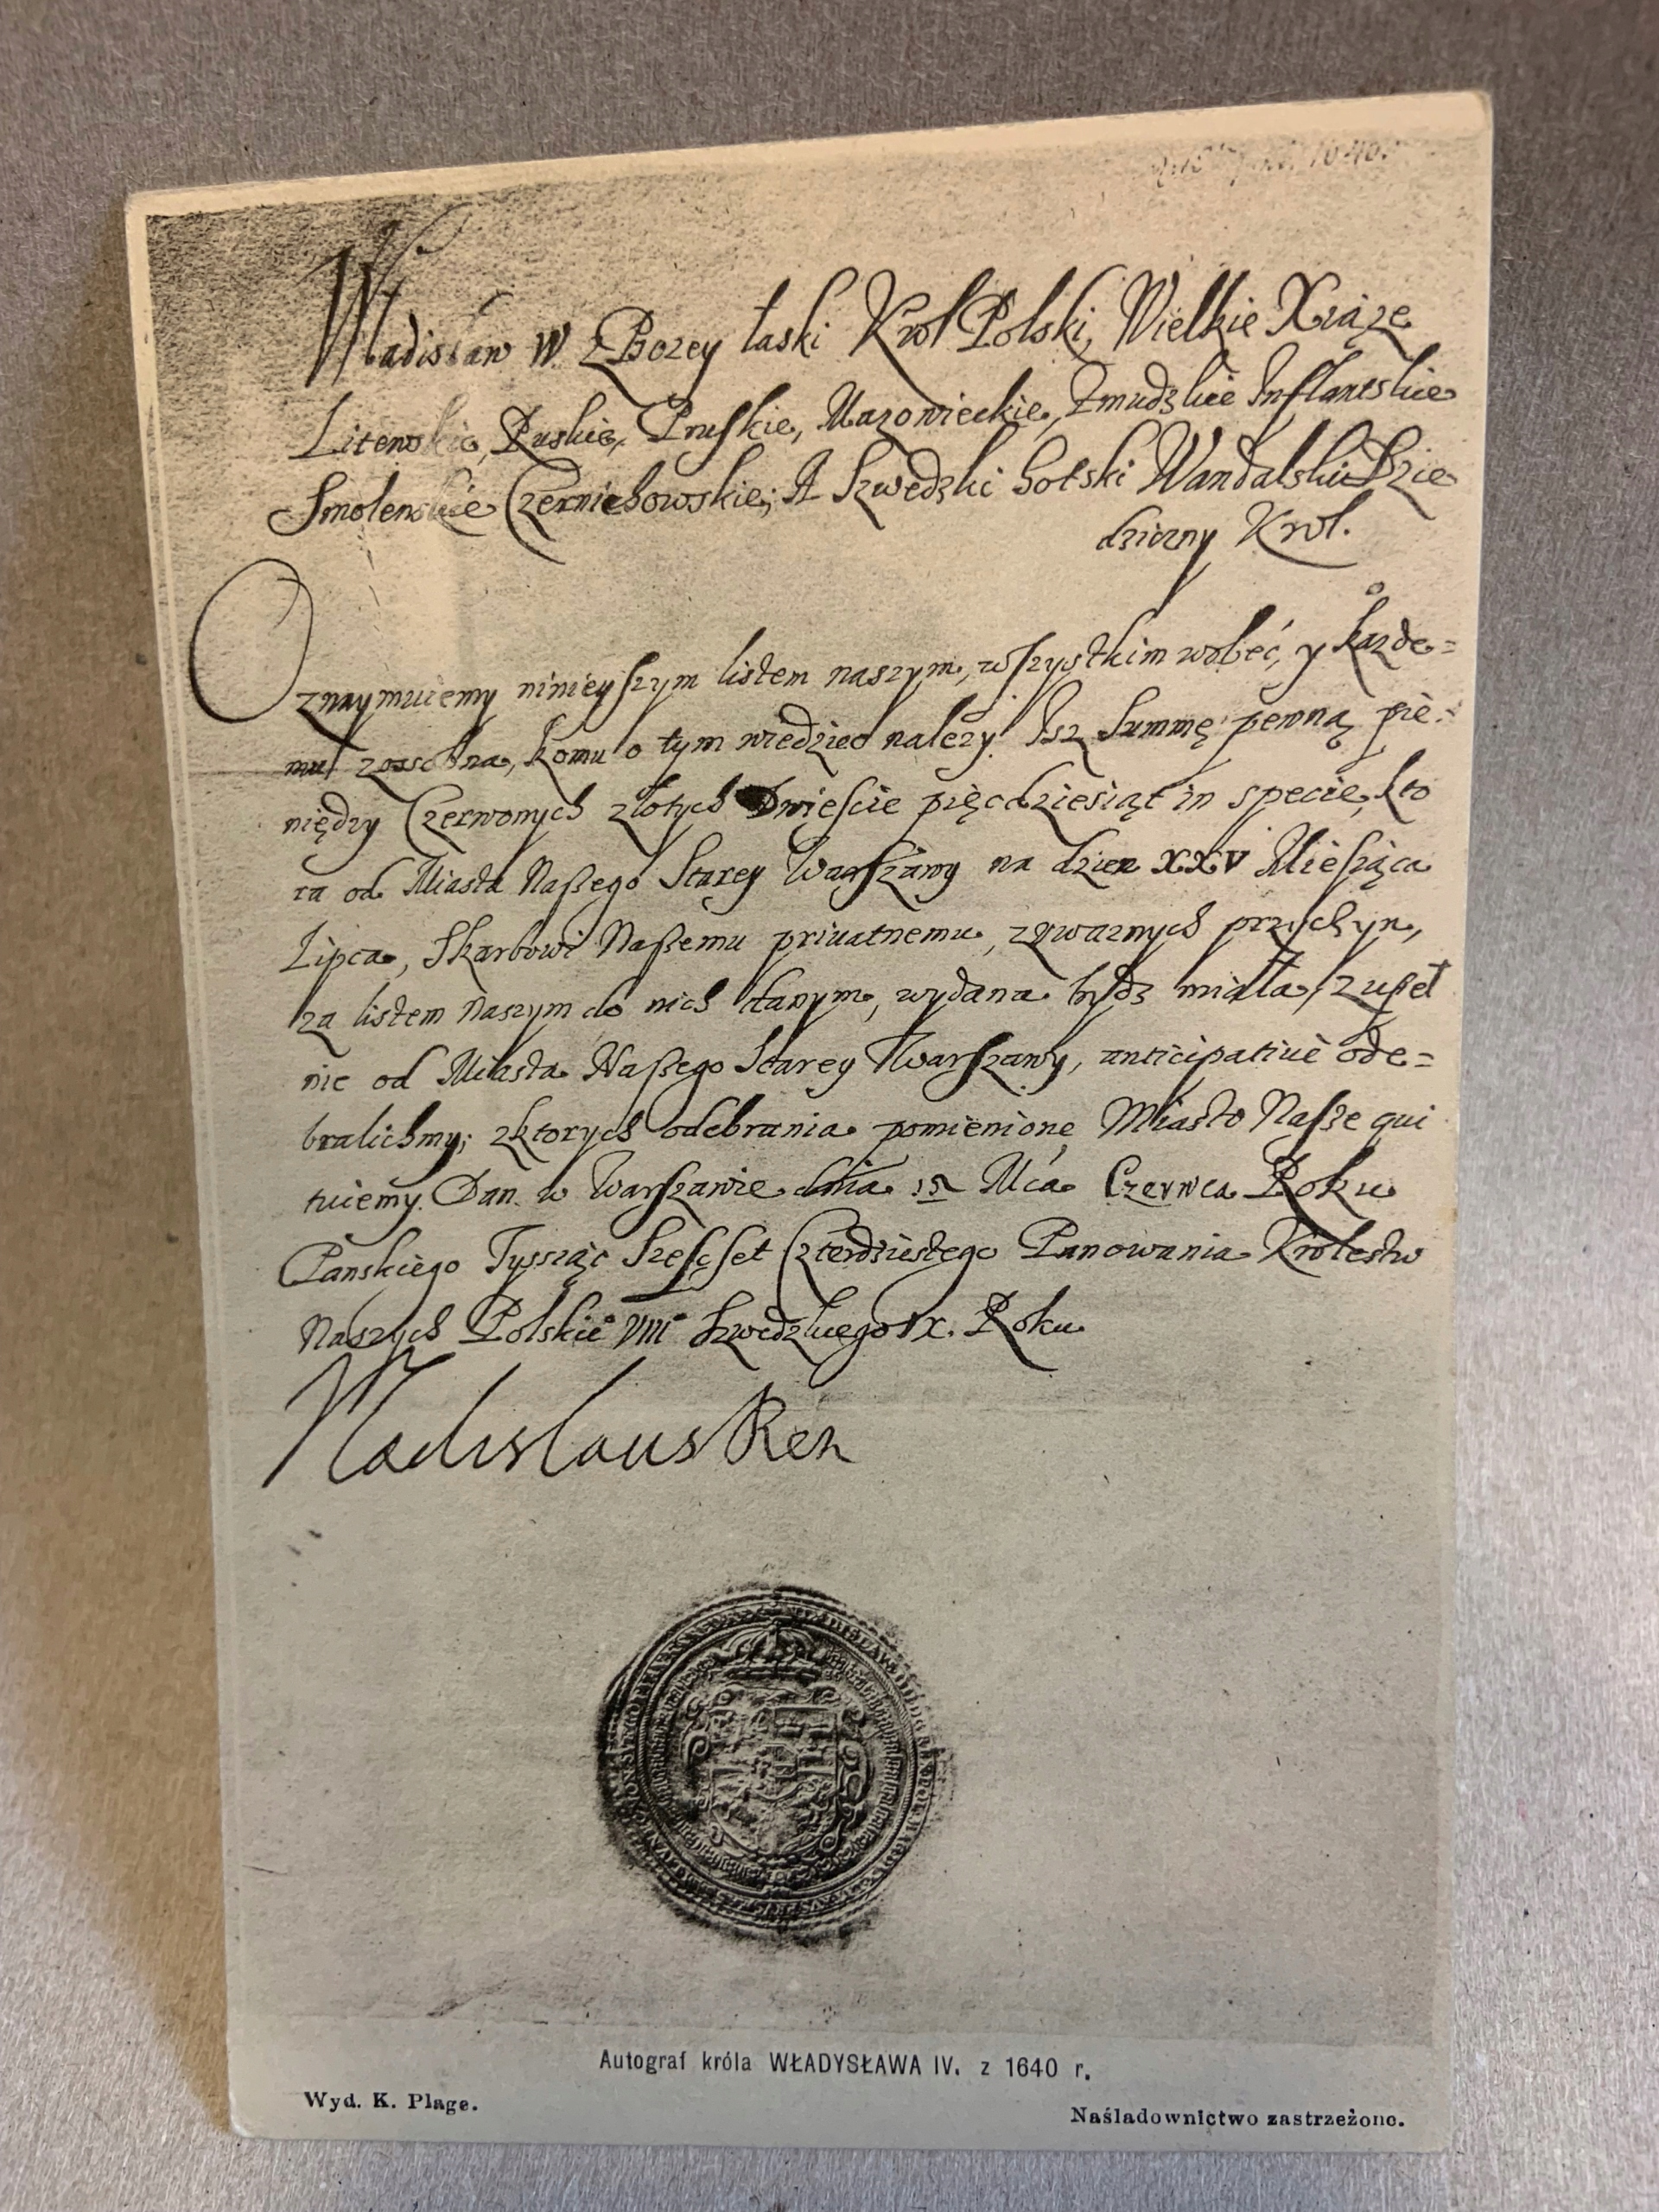 1640.
Wladisław IV. z Bozey łaski Krol Polski, Wielkie Xiąze
Litewskie, Ruskie, Pruskie, Mazowieckie, Zmudzkie Inflantskie
Smolenskie Czerniechowskie; A Szwedzki Gotski Wandalski Dzie
dziczny Krol.
Oznaymuiemy ninieyszym listem naszym, wszystkim wobeć, y kazde=
mu zosobna, komu o tym wiedzieć nalezy. Isz Summę pewną pie=
niędzy Czerwonych złotych Dwieście pięcdziesiąt in specie, kto
ra od Miasta Naszego Starey Warszawy na dzien XXV Miesiąca
Lipca, Skarbowi Naszemu priuatnemu, z pwaznych przyczyn,
za listem naszym do nich danym, wydana bydz miała, zupeł
nie od Miasta Naszego Starey Warszawy, anticipatiue ode=
bralichmy; z ktorych odebrania pomienione Miasto Nasze qui
tuiemy. Dan. w Warszawie dnia Mca Czerwca Roku
Panskiego Tysiąc Szesćset Czterdziestego Panowania Krolestw
Naszych Polskie° VIII° Szwedzkiego IX. Roku
Vladislaus Rex
Autograf króla WŁADYSŁAWA IV. z 1640 r.
Wyd. K. Plage.
Naśladownictwo zastrzeżone.